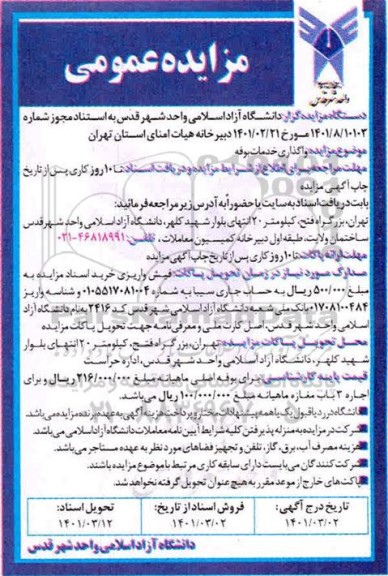 مزایده عمومی
دستگاه مزایده گزار: دانشگاه آزاد اسلامی واحد شهر قدس به استناد مجوز شماره
۱۴۰۱/۸/۱۰۱۰۳ مورخ ۱۴۰۱/۰۲/۲۱ دبیرخانه هیات امنای استان تهران
موضوع مزایده: واگذاری خدمات بوفه
مهلت مراجعه برای اطلاع از شرایط مزایده و دریافت اسناد: تا ۱۰ روز کاری پس از تاریخ
چاپ آگهی مزایده
بابت دریافت اسناد به سایت یا حضوراً به آدرس زیر مراجعه فرمائید:
تهران، بزرگراه فتح، کیلومتر ۲۰ انتهای بلوار شهید کلهر، دانشگاه آزاد اسلامی واحد شهر قدس
ساختمان ولایت، طبقه اول دبیرخانه کمیسیون معاملات، تلفن: ۴۶۸۱۸۹۹۱-۰۲۱
مهلت ارائه پاکات: تا ۱۰ روز کاری پس از تاریخ چاپ آگهی مزایده
مدارک مورد نیاز در زمان تحویل پاکات: فیش واریزی خرید اسناد مزایده به
مبلغ ۵۰۰/۰۰۰ ریال به حساب جاری سیبا به شماره ۰۱۰۵۵۱۷۰۸۱۰۰۴ و شناسه واریز
۰۱۷۰۸۱۰۰۴۸۴ بانک ملی شعبه دانشگاه آزاد اسلامی شهر قدس کد ۲۴۱۶ به نام دانشگاه آزاد
اسلامی واحد شهر قدس، اصل کارت ملی و معرفی نامه جهت تحویل پاکات مزایده
محل تحویل پاکات مزایده: تهران، بزرگراه فتح، کیلومتر ۲۰ انتهای بلوار
شهید کلهر، دانشگاه آزاد اسلامی واحد شهر قدس، اداره حراست
قیمت پایه کارشناسی: برای بوفه اصلی ماهیانه مبلغ ۲۱۶/۰۰۰/۰۰۰ ریال و برای
اجاره ۲ باب مغازه ماهیانه مبلغ ۱۰۰/۰۰۰/۰۰۰ ریال می باشد.
دانشگاه در رد یا قبول یک یا همه پیشنهادات مختار و پرداخت هزینه آگهی به عهده برنده مزایده می باشد.
شرکت در مزایده به منزله پذیرفتن کلیه شرایط آیین نامه معاملات دانشگاه آزاد اسلامی می باشد.
هزینه مصرف آب، برق، گاز، تلفن و تجهیز فضاهای مورد نظر به عهده مستاجر می باشد.
شرکت کنندگان می بایست دارای سابقه کاری مرتبط با موضوع مزایده باشند.
پاکت های خارج از موعد مقرر به هیچ عنوان تحویل گرفته نخواهد شد.
تاریخ درج آگهی: ۱۴۰۱/۰۳/۰۲
فروش اسناد از تاریخ: ۱۴۰۱/۰۳/۰۲
تحویل اسناد: ۱۴۰۱/۰۳/۱۲
دانشگاه آزاد اسلامی واحد شهر قدس